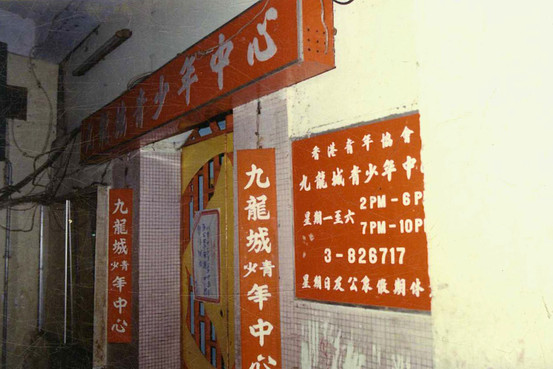 九龍城青少年中心
九龍城青少年中心
九龍城青少年中心
香港青年協會
九龍城青少年中
星期一至六
2PM-6P
7PM-10P
3-826717
星期日及公衆假期休